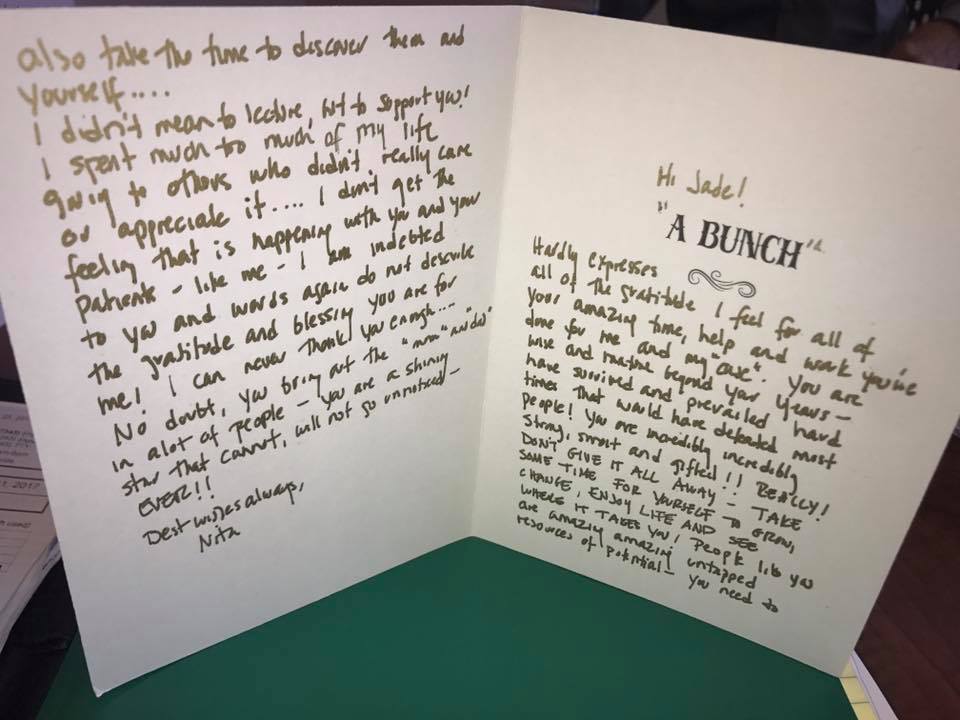 Hi Jade!
"A BUNCH"
Hardly expresses
all of the gratitude I feel for all of
your amazing time, help and work you've
done for me and my "case". You are
wise and mature beyond your years -
have survived and prevailed hard
times that would have defeated most
people! You are incredibly incredibly
strong, smart and gifted!! REALLY!
DON'T GIVE IT ALL AWAY - TAKE
SOME TIME FOR YOURSELF TO GROW,
CHANGE, ENJOY LIFE AND SEE
WHERE IT TAKES YOU! People like you
are amazing amazing untapped
resources of potential - you need to
also take the time to discover them and
yourself....
I didn't mean to lecture, but to support you!
I spent much too much of my life
going to others who didn't really care
or appreciate it.... I don't get the
feeling that is happening with you and your
patients - like me - I am indebted
to you and words again do not describe
the gratitude and blessing you are for
me! I can never thank you enough....
No doubt, you bring out the "mom" "and dad"
in alot of people - you are a shining
star that cannot, will not go unnoticed -
EVER!!
Best wishes always,
Nita
2017